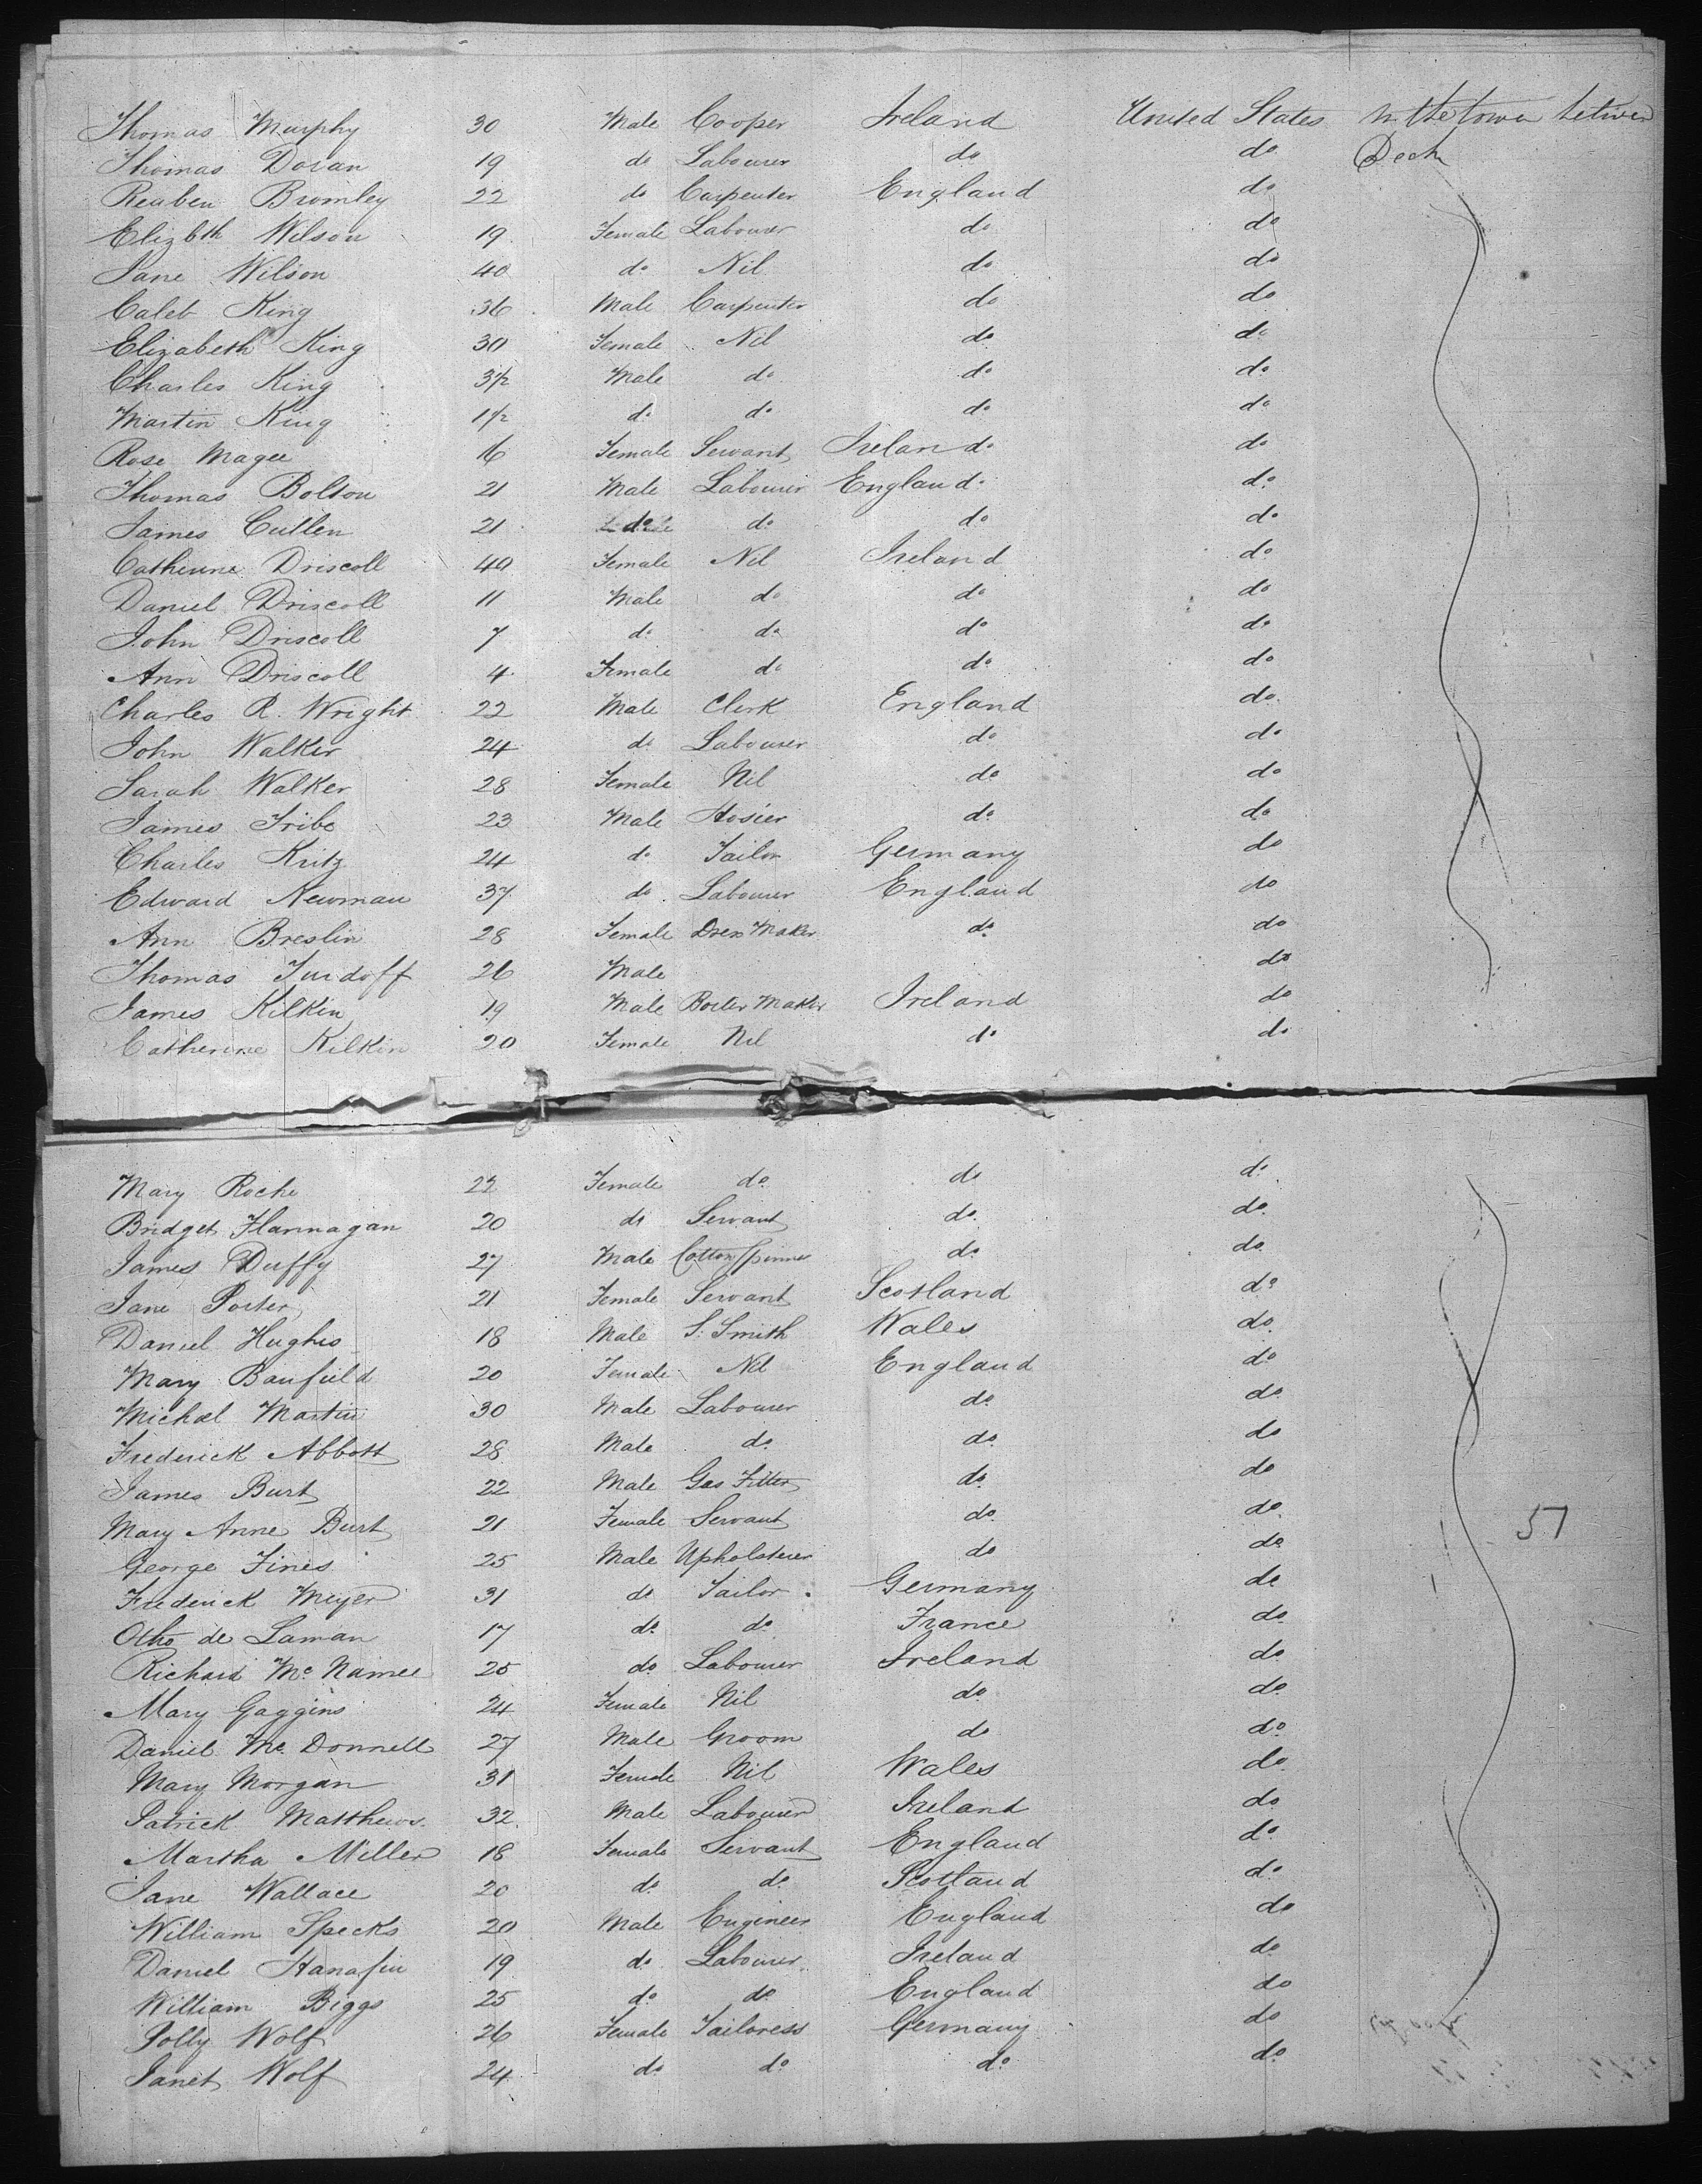 Thomas Murphy 30 Male Cooper Ireland United States In the lower between
Thomas Doran 19 do Labourer do do Deck
Reuben Bromley 22 do Carpenter England do
Elizbth Wilson 19 Female Labourer do do
Jane Wilson 40 do Nil do do
Caleb King 36 Male Carpenter do do
Elizabeth King 30 Female Nil do do
Charles King 3½ Male do do do
Martin King 1½ do do do do
Rose Magee 16 Female Servant Ireland do
Thomas Bolton 21 Male Labourer England do
James Cullen 21 do do do do
Catherine Driscoll 40 Female Nil Ireland do
Daniel Driscoll 11 Male do do do
John Driscoll 7 do do do do
Ann Driscoll 4 Female do do do
Charles R. Wright 22 Male Clerk England do
John Walker 24 do Labourer do do
Sarah Walker 28 Female Nil do do
James Tribe 23 Male Hosier do do
Charles Kritz 24 do Tailor Germany do
Edward Newman 37 do Labourer England do
Ann Breslin 28 Female Dress Maker do do
Thomas 26 Male do
James Kilkin 19 Male Boiler Maker Ireland do
Catherine Kilkin 20 Female Nil do do
Mary Roche 22 Female do do do
Bridget Flannagan 20 do Servant do do
James Duffy 27 Male Cotton Spinner do do
Jane Porter 21 Female Servant Scotland do
Daniel Hughes 18 Male S. Smith Wales do
Mary Banfield 20 Female Nil England do
Michael Martin 30 Male Labourer do do
Frederick Abbott 28 Male do do do
James Burt 22 Male Gas Fitter do do
Mary Anne Burt 21 Female Servant do do 51
George Fines 25 Male Upholsterer do do
Frederick Meyer 31 do Tailor Germany do
Otho de Laman 17 do do France do
Richard McNamee 25 do Labourer Ireland do
Mary Goggins 24 Female Nil do do
Daniel McDonnell 27 Male Groom do do
Mary Morgan 31 Female Nil Wales do
Patrick Matthews 32 Male Labourer Ireland do
Martha Miller 18 Female Servant England do
Jane Wallace 20 do do Scotland do
William Specks 20 Male Engineer England do
Daniel Hanafin 19 do Labourer Ireland do
William Biggs 25 do do England do
Polly Wolf 26 Female Tailoress Germany do
Janet Wolf 24 do do do do